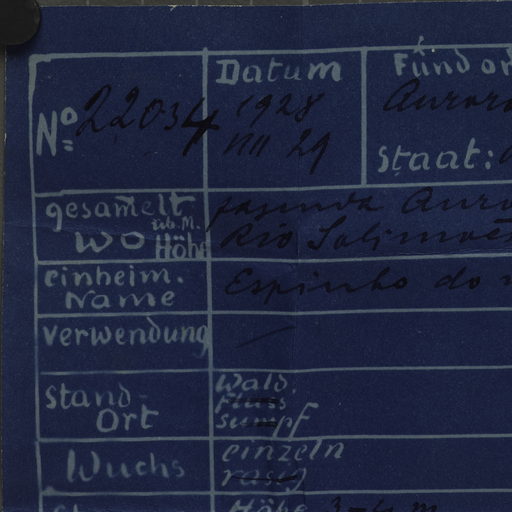 Datum
Fundort
No 22034
1928
VIII 29
Auror
Staat:
gesammelt
wo üb.M. Höhe
fazenda Auro
Rio Solimoes
einheim. Name
Espinho do
Verwendung
Stand-Ort
Wald.
Fluss
Sumpf
Wuchs
einzeln
rasig
Höhe 3-4 m